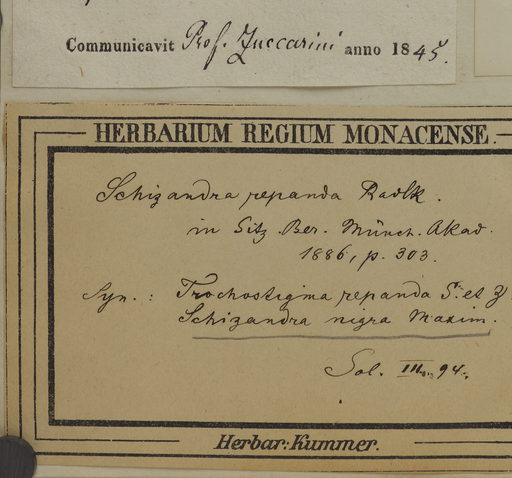 Communicavit Prof. Zuccarini anno 1845.
HERBARIUM REGIUM MONACENSE.
Schizandra repanda Radlk.
in Sitz. Ber. Münch. Akad.
1886, p. 303.
Syn.: Trochostigma repanda S. et Z.
Schizandra nigra Maxim.
Sol. III. 94.
Herbar: Kummer.